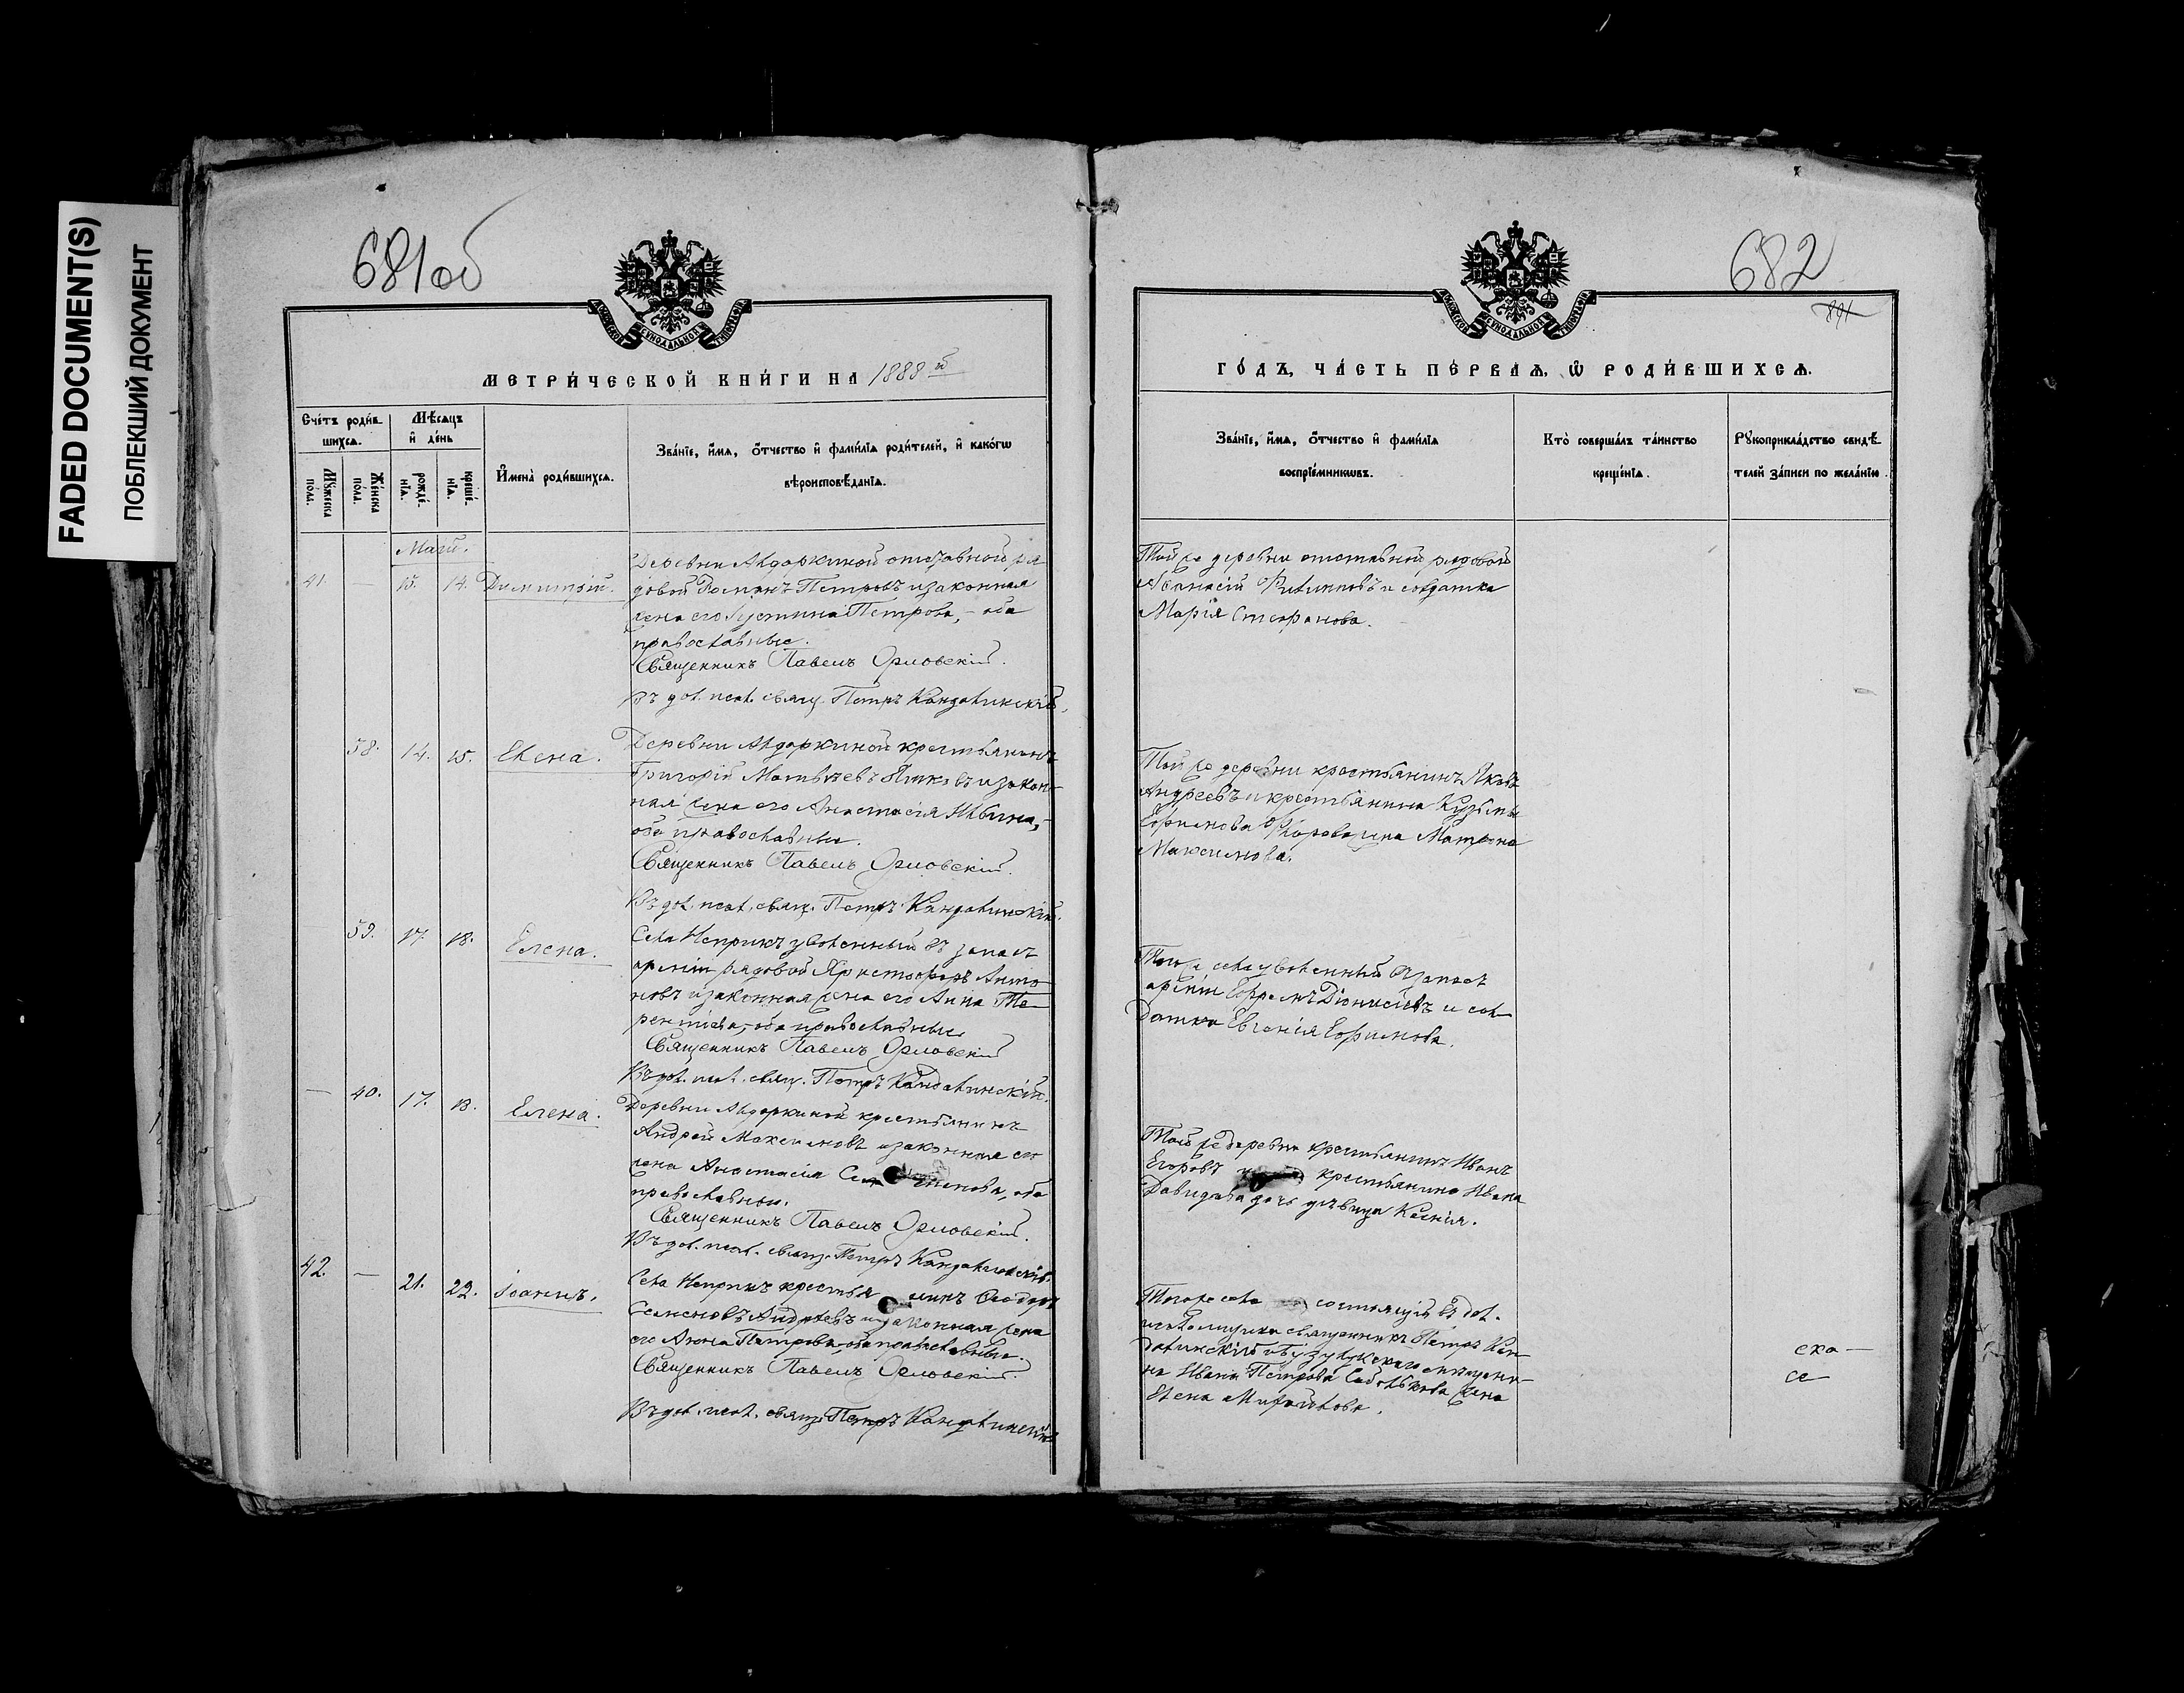 FADED DOCUMENT(S)
ПОБЛЕКШИЙ ДОКУМЕНТ
681об
МЕТРИ́ЧЕСКОЙ КНИ́ГИ НА 1888й
Сче́тъ роди́в-
шихся.
Мѣсяцъ
и҆ де́нь
Мꙋ́жеска
по́ла.
Же́нска
по́ла.
рожде́-
нїѧ.
креще́-
нїѧ.
И҆мена̀ роди́вшихсѧ.
Зва́нїе, и҆́мѧ, ѻ҆́тчество и҆ фами́лїѧ роди́телей, и҆ како́гѡ
вѣроисповѣ́данїѧ.
Маій.
41. — 13. 14. Димитрій.
Деревни Авдоркиной отставной ря
довой Романъ Петровъ и законная
жена его Устина Петрова, – оба
православные.
Священникъ Павелъ Орловскій.
Въ дол. псал. свящ. Петръ Кандалинскій.
38. 14. 15. Елена.
Деревни Авдоркиной крестьянинъ
Григорій Матвѣевъ и закон-
ная жена его Анастасія Ильина, –
оба православные.
Священникъ Павелъ Орловскій.
Въ дол. псал. свящ. Петръ Кандалинскій.
39. 17. 18. Елена.
Села Неприкъ уволенный въ запасъ
арміи рядовой Христофоръ Анто
новъ и законная жена его Анна Те-
рентіева, – оба православные
Священникъ Павелъ Орловскій
Въ дол. псал. свящ. Петръ Кандалинскій.
— 40. 17. 18. Елена.
Деревни Авдоркиной крестьянинъ
Андрей Максимовъ и законная его
жена Анастасія оба
православные.
Священникъ Павелъ Орловскій.
Въ дол. псал. свящ. Петръ Кандалинскій.
42. — 21. 22. Іоаннъ.
Села Неприкъ крестьянинъ Ѳеодоръ
Семеновъ Андреевъ и законная жена
его Анна Петрова, оба православные.
Священникъ Павелъ Орловскій.
Въ дол. псал. свящ. Петръ Кандалинскій
682
891
ГО́ДЪ, ЧА́СТЬ ПЕ́РВАѦ, Ѡ҆ РОДИ́ВШИХСѦ.
Зва́нїе, и҆́мѧ, ѻ҆́тчество и҆ фами́лїѧ
воспрїе́мникѡвъ.
Кто̀ соверша́лъ та́инство
креще́нїѧ.
Рꙋкоприкла́дство свидѣ́-
телей за́писи по жела́нїю.
Той же деревни отставной рядовой
Аѳанасій Филипповъ и солдатка
Марія Стефанова.
Той же деревни крестьянинъ Яковъ
Андреевъ и крестьянина Кузьмы
Ефимова жена Матрона
Максимова.
Того же села уволенный въ запасъ
арміи Ефремъ Діонисіевъ и сол-
датка Евгенія Ефимова.
Той же деревни крестьянинъ Иванъ
Егоровъ и крестьянина Ивана
Давидова дочь дѣвица Ксенія.
Того же села состоящій въ дол.
псаломщика священникъ Петръ Кан-
далинскій и Бузулукскаго мѣщани-
на Ивана Петрова жена
Елена Михайлова.
ска —
се